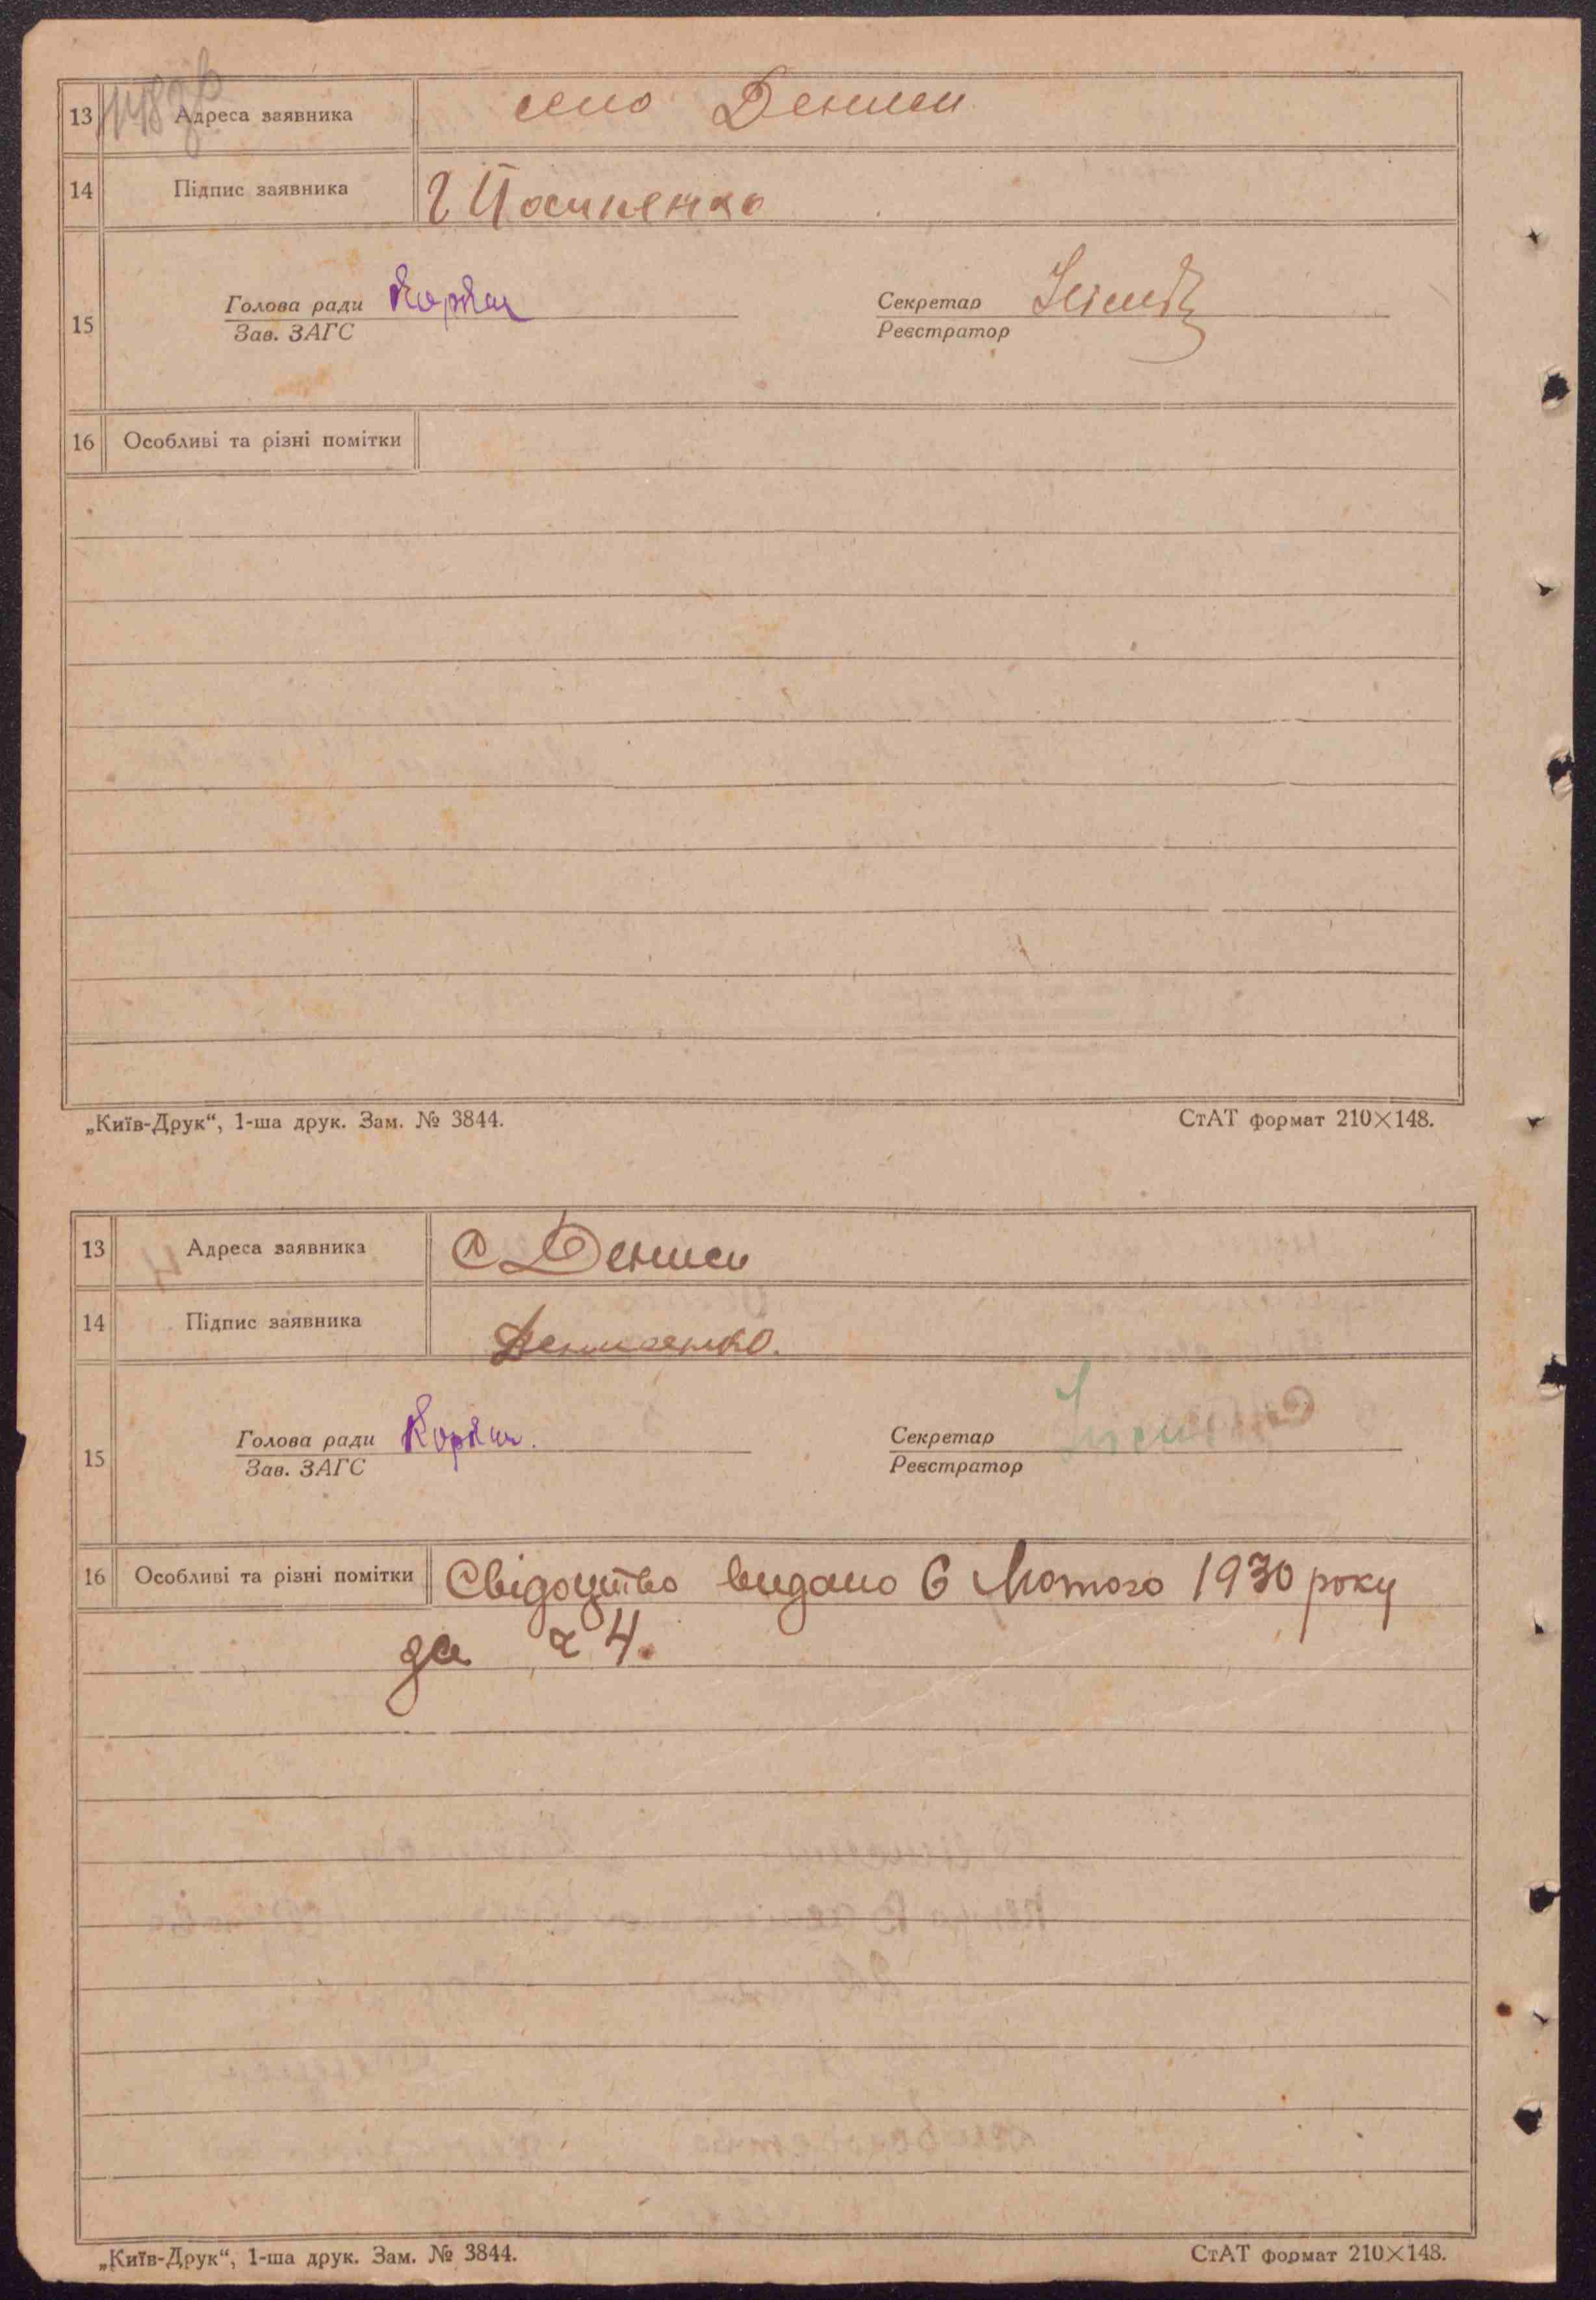 13 Адреса заявника село Дениси
14 Підпис заявника
15 Голова ради Коржан Секретар
Зав. ЗАГС Реєстратор
16 Особливі та різні помітки
„Київ-Друк“, 1-ша друк. Зам. № 3844. СтАТ формат 210×148.
13 Адреса заявника с Дениси
14 Підпис заявника Денисенко.
15 Голова ради Коржан. Секретар
Зав. ЗАГС Реєстратор
16 Особливі та різні помітки Свідоцтво видано 6 Лютого 1930 року
за ч 4.
„Київ-Друк“, 1-ша друк. Зам. № 3844. СтАТ формат 210×148.